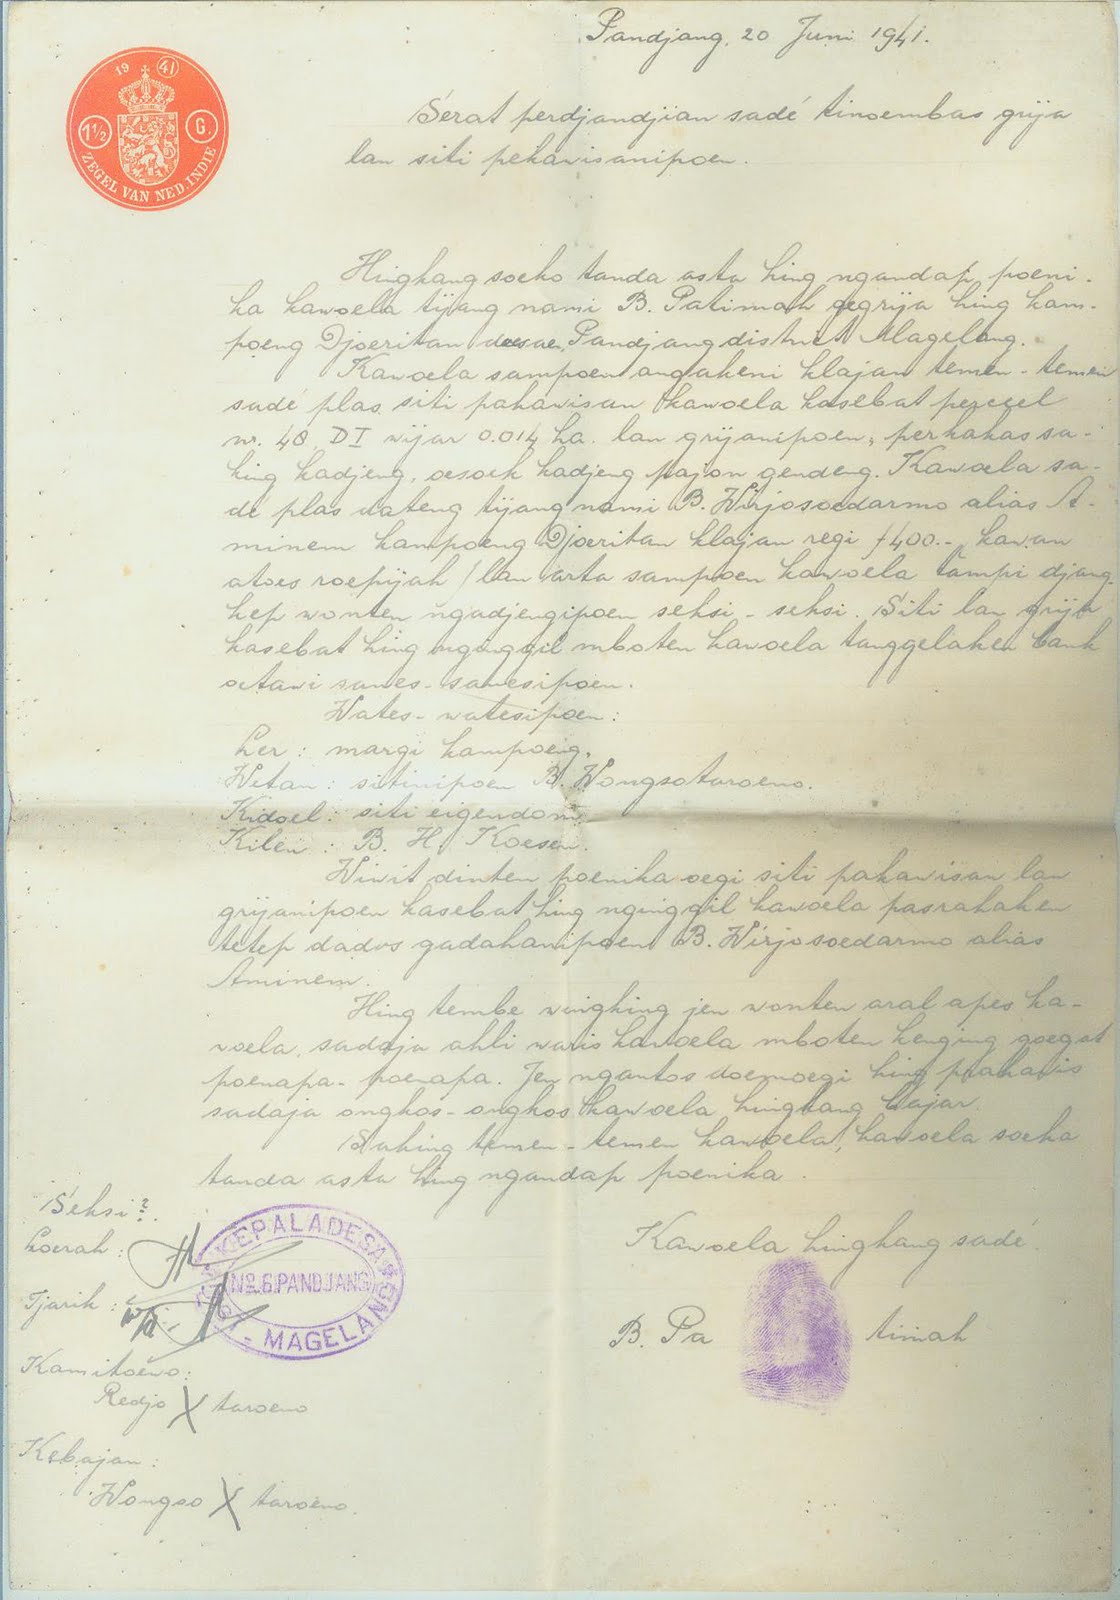 Pandjang, 20 Juni 1941.
19 41
1½ G.
ZEGEL VAN NED. INDIE
Serat perdjandjian sadé tinoembas grija
lan siti pekawisanipoen.
Hingkang soeko tanda asta hing ngandap poeni-
ka kawoela tijang nami B. Patimah gegrija hing kam-
poeng Djoeritan desa Pandjang district Magelang.
Kawoela sampoen angakeni klajan temen-temen
sadé plas siti pakawisan kawoela kasebat perceel
nr. 48 D I wijar 0.014 ha. lan grijanipoen, perkakas sa-
king kadjeng, oesoek kadjeng pajon gendeng. Kawoela sa-
de plas dateng tijang nami B. Wirjosoedarmo alias A-
minem kampoeng Djoeritan klajan regi f 400.- kawan
atoes roepijah / lan arta sampoen kawoela tampi djang-
kep wonten ngadjengipoen seksi-seksi. Siti lan grija
kasebat hing nginggil mboten kawoela tanggelaken bank
oetawi sanes-sanesipoen.
Wates-watesipoen:
Ler : margi kampoeng.
Wetan : sitinipoen B. Wongsotaroeno.
Kidoel : siti eigendom
Kilen : B. H. Koesen.
Wiwit dinten poenika oegi siti pakawisan lan
grijanipoen kasebat hing nginggil kawoela pasrahaken
tetep dados gadahanipoen B. Wirjosoedarmo alias
Aminem.
Hing tembe wingking jen wonten aral apes ka-
woela, sadaja ahli waris kawoela mboten kenging goegat
poenapa-poenapa. Jen ngantos doemoegi hing prakawis
sadaja ongkos-ongkos kawoela hingkang bajar.
Saking temen-temen kawoela, kawoela soeka
tanda asta hing ngandap poenika.
Seksi2.
Loerah :
KEPALA DESA
No. 6 PANDJANG
MAGELANG
Tjarik :
Kawoela hingkang sadé.
B. Pa timah
Kamitoewo:
Redjo X taroeno
Kebajan :
Wongso X taroeno.